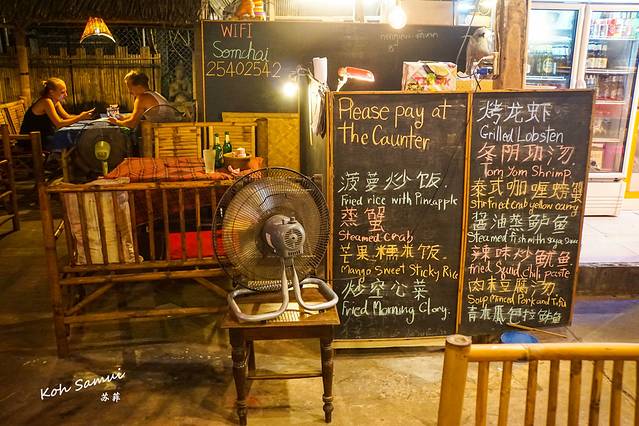 WIFI
Somchai
25402542
Please pay at
the Caunter
菠萝炒饭
Fried rice with Pineapple
蒸蟹
Steamed crab
芒果糯米饭
Mango Sweet Sticky Rice
炒空心菜
Fried Morning Glory.
烤龙虾
Grilled Lobster
冬阴功汤
Tom Yom Shrimp
泰式咖喱螃蟹
Stir fried crab yellow curry
酱油蒸鲈鱼
Steamed fish with soya Sauce
辣味炒鱿鱼
fried Squid chili paste
肉末豆腐汤
Soup Minced Pork and Tofu
Koh Samui
苏菲